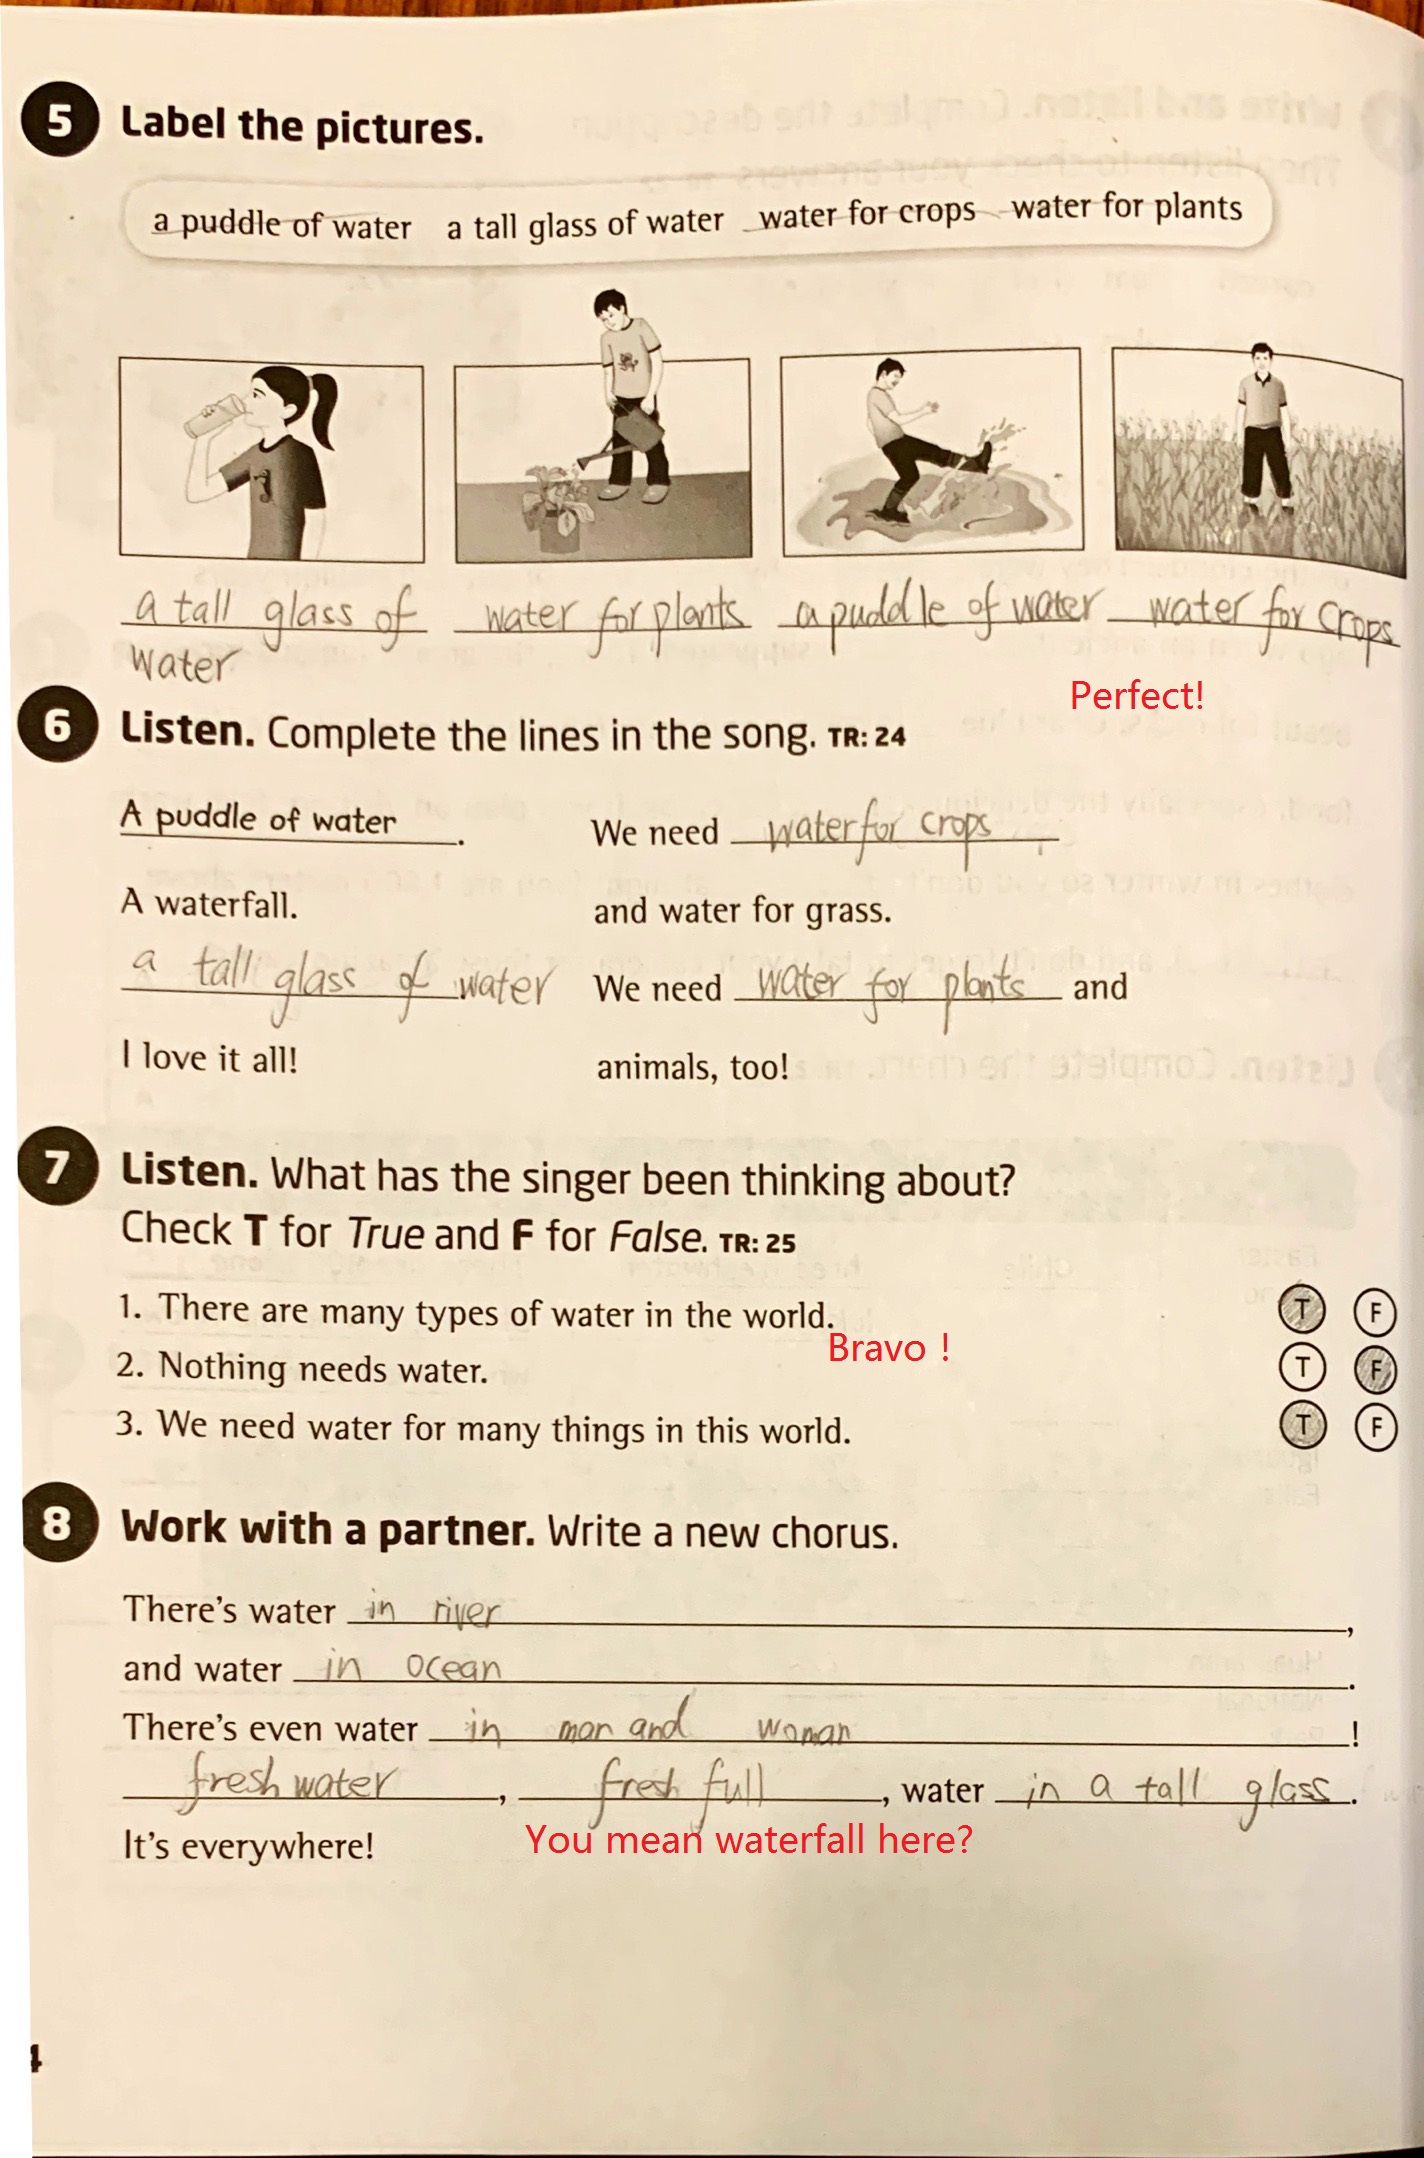 5 Label the pictures.
a puddle of water a tall glass of water water for crops water for plants
a tall glass of water
water for plants
a puddle of water
water for crops
Perfect!
6 Listen. Complete the lines in the song. TR: 24
A puddle of water.
A waterfall.
a tall glass of water
I love it all!
We need water for crops,
and water for grass.
We need water for plants and
animals, too!
7 Listen. What has the singer been thinking about?
Check T for True and F for False. TR: 25
1. There are many types of water in the world. T F
Bravo !
2. Nothing needs water. T F
3. We need water for many things in this world. T F
8 Work with a partner. Write a new chorus.
There's water in river,
and water in ocean.
There's even water in man and woman!
fresh water, fresh full, water in a tall glass.
You mean waterfall here?
It's everywhere!
4